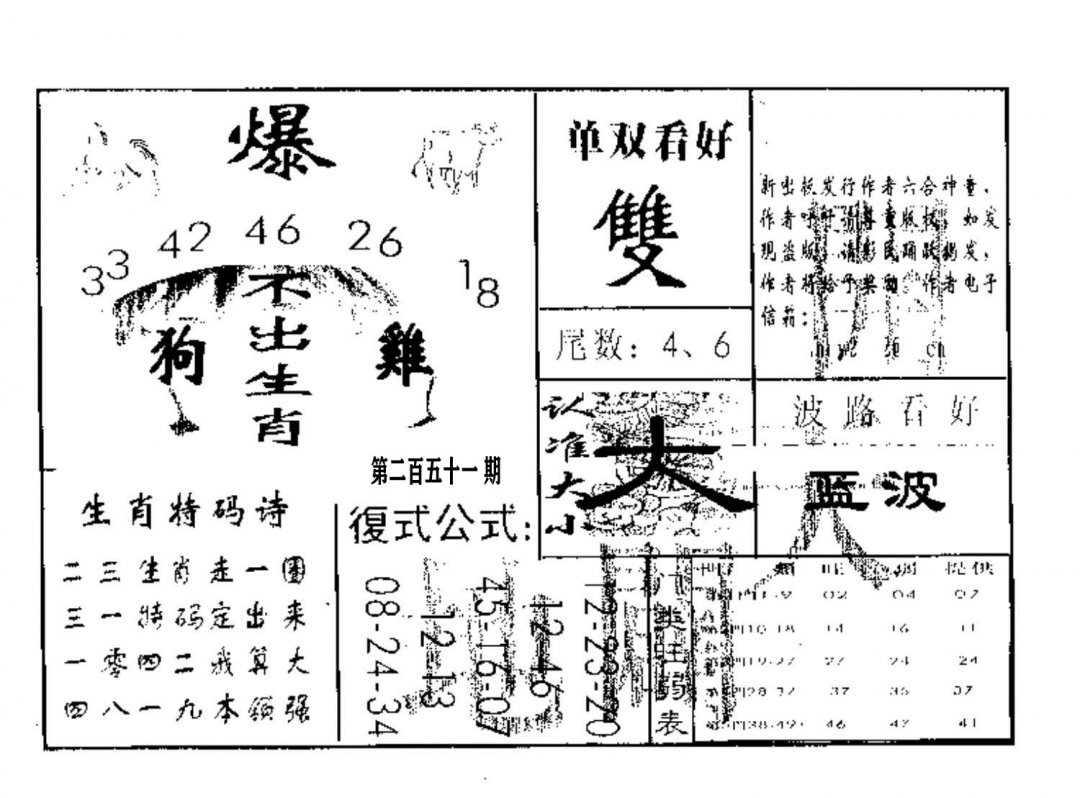 爆
33 42 46 26 18
不出生肖
狗
雞
第二百五十一期
生肖特码诗
二三生肖走一圈
三一特码定出来
一零四二我算大
四八一九本领强
復式公式:
08-24-34
12 13
45-16-07
12-46
12-23-20
单双看好
雙
尾数: 4、6
认准大小
大
新出版发行作者六合神童,
作者呼吁请尊重版权, 如发
现盗版, 请彩民踊跃揭发,
作者将给予奖励 作者电子
信箱:
波路看好
蓝波
门类旺弱表
提供
02 04 07
10-18 14 16 11
19-27 27 24 24
28-37 37 35 37
38-49 46 47 41